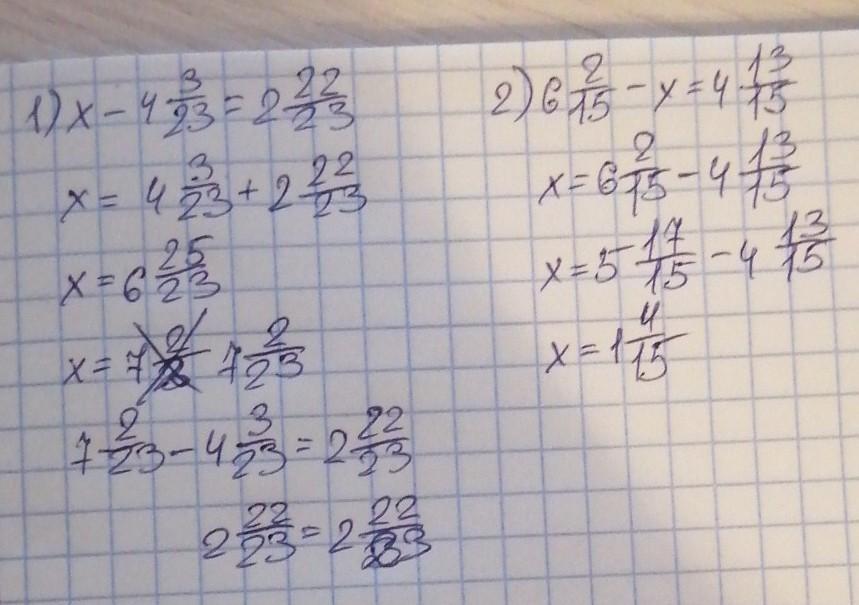 1) x - 4 3/23 = 2 22/23
x = 4 3/23 + 2 22/23
x = 6 25/23
x = 7 2/23
7 2/23 - 4 3/23 = 2 22/23
2 22/23 = 2 22/23
2) 6 2/15 - x = 4 13/15
x = 6 2/15 - 4 13/15
x = 5 17/15 - 4 13/15
x = 1 4/15